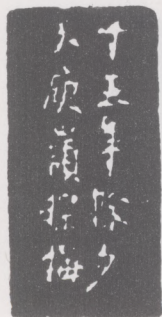 十五年除夕
大庾嶺探梅